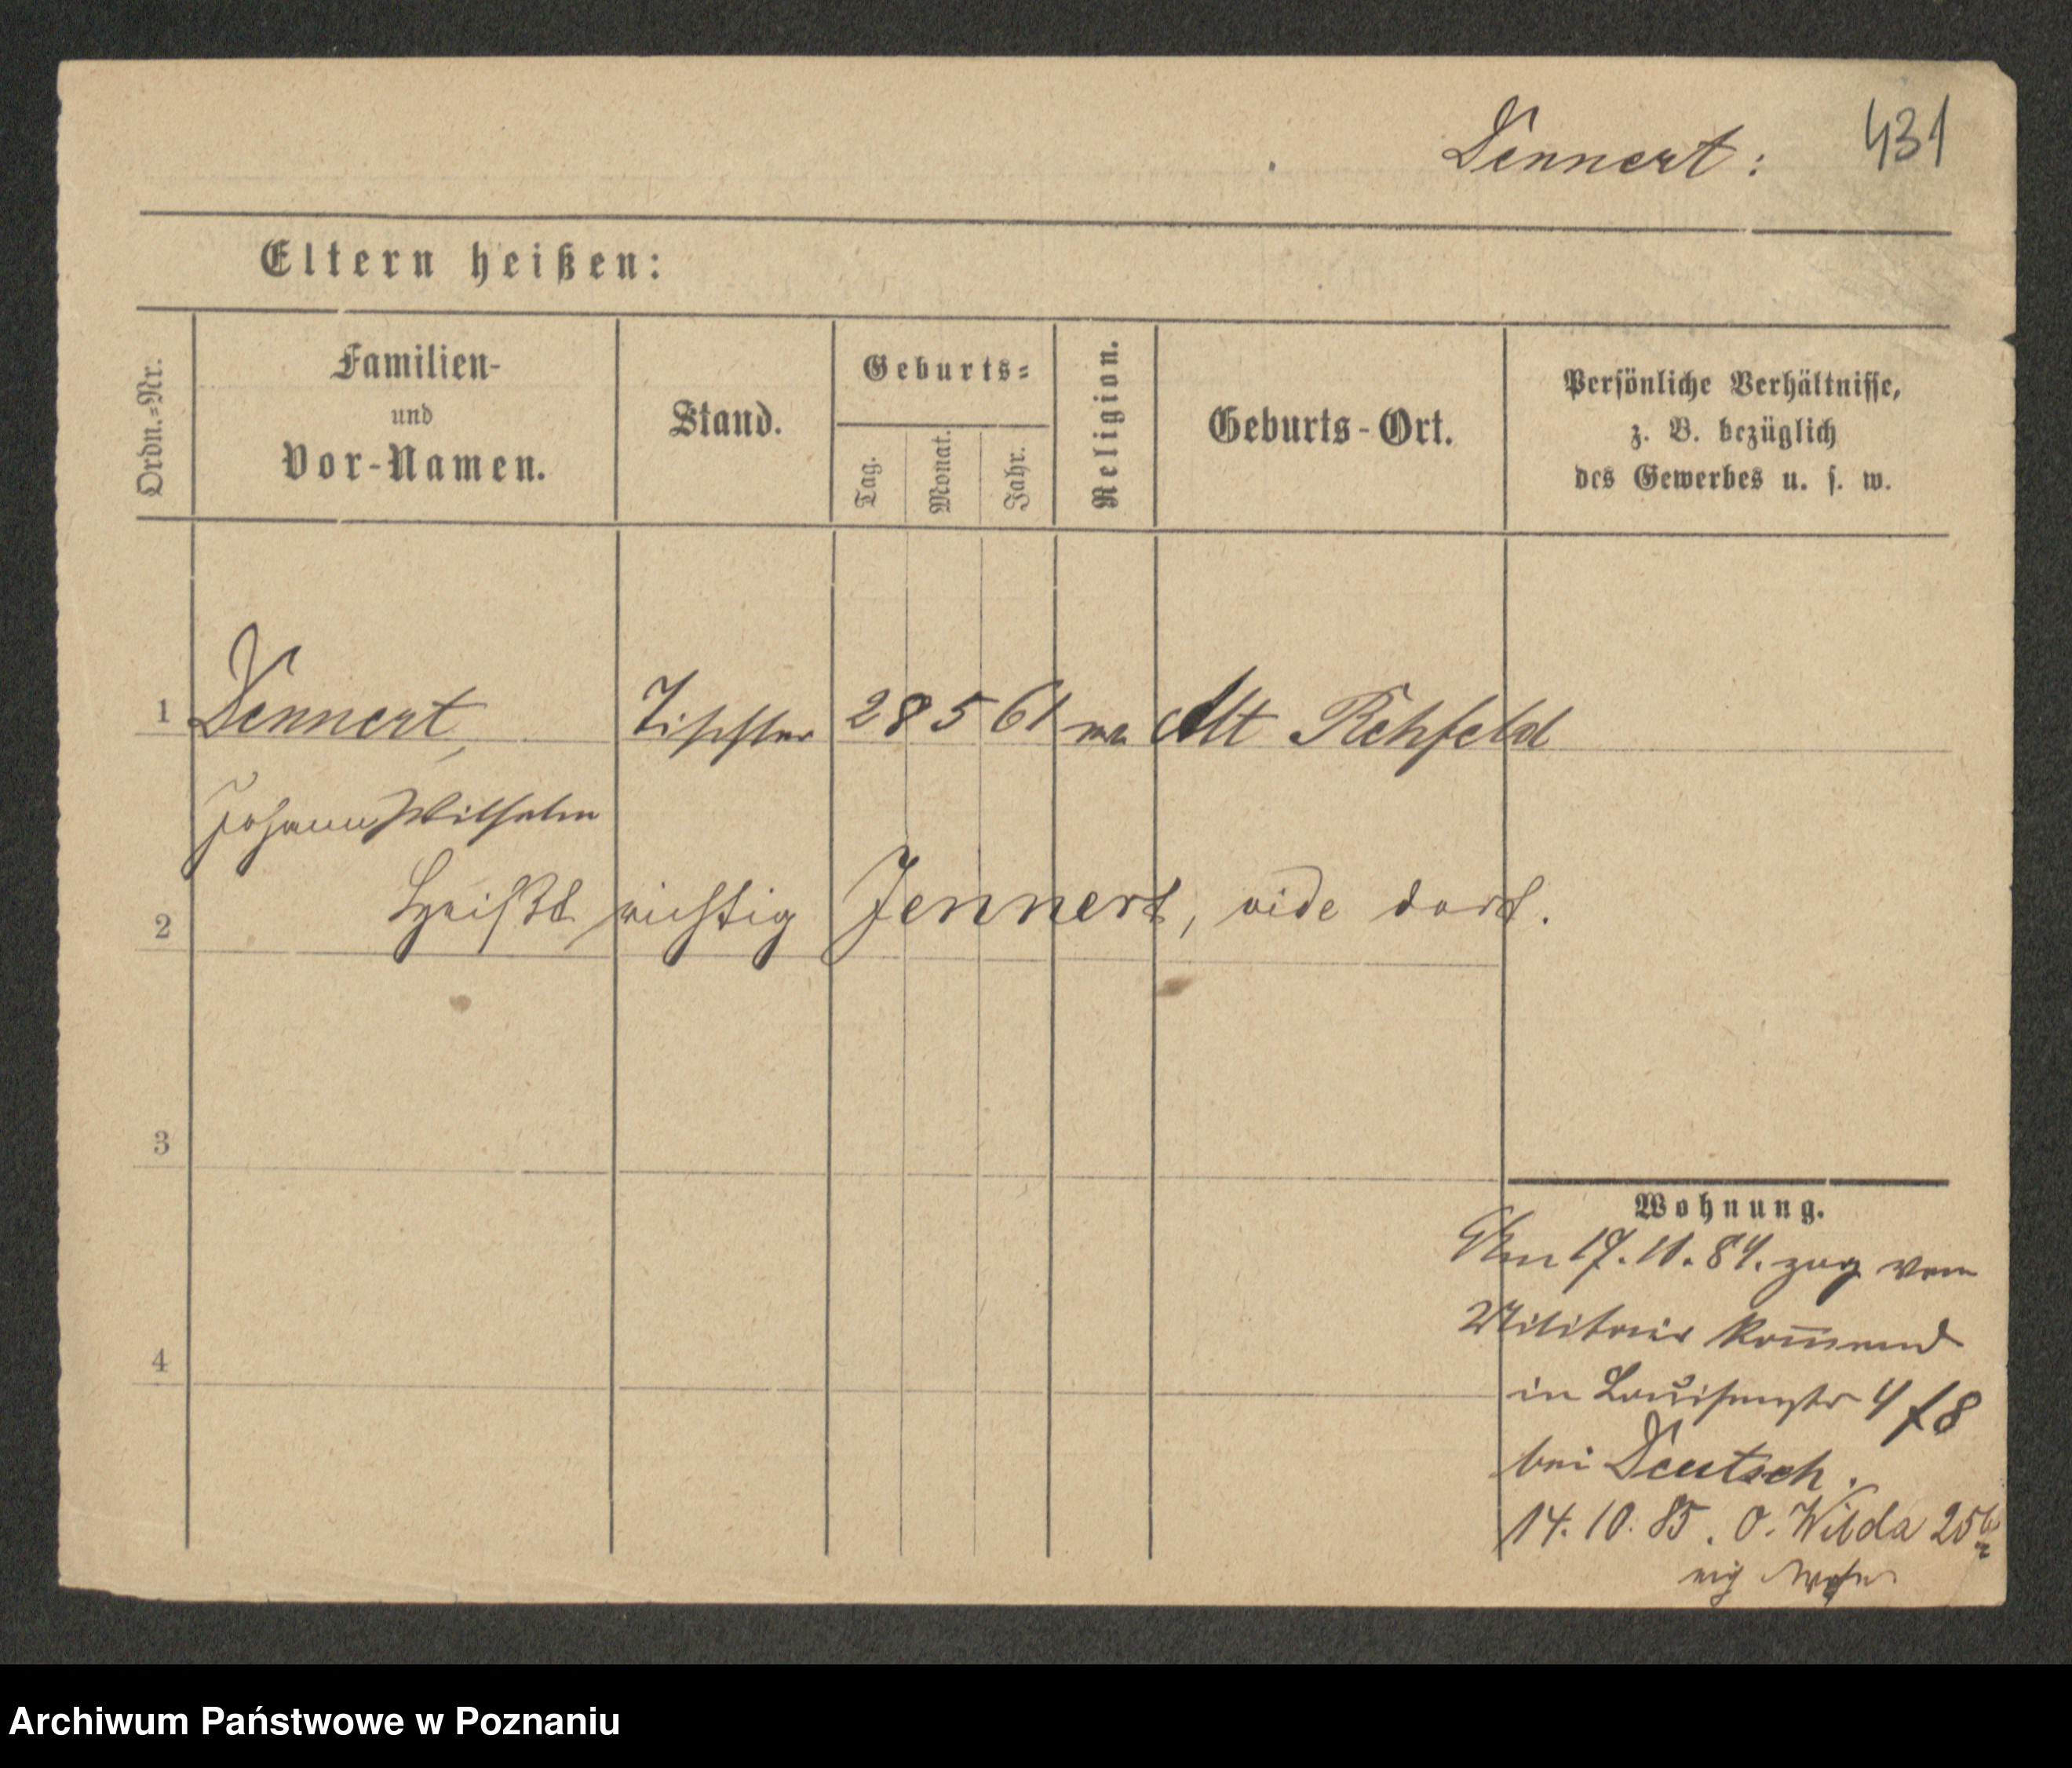 Dennert: 431
Eltern heißen:
Ordn.=Nr.
Familien-
und
Vor-Namen.
Stand.
Geburts=
Tag.
Monat.
Jahr.
Religion.
Geburts-Ort.
Persönliche Verhältnisse,
z. B. bezüglich
des Gewerbes u. s. w.
1 Dennert, Tischler 28 5 61 Alt Rehfeld
Johann Wilhelm
2 Heißt richtig Jennert, vide dort.
3
4
Wohnung.
17.11.84. zug vom
Militair kom̄end
in Louisenstr 4
bei Deutsch.
14.10.85. O. Wilda 25
Archiwum Państwowe w Poznaniu